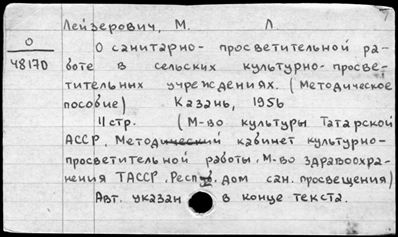 Лейзерович, М. Л.
О
48170
О санитарно- просветительной ра-
боте в сельских культурно-просве-
тительных учреждениях. (Методическое
пособие) Казань, 1956
11 стр. (М-во культуры Татарской
АССР. Методический кабинет культурно-
просветительной работы. М-во здравоохра-
нения ТАССР. Респуб. дом сан. просвещения)
Авт. указан в конце текста.